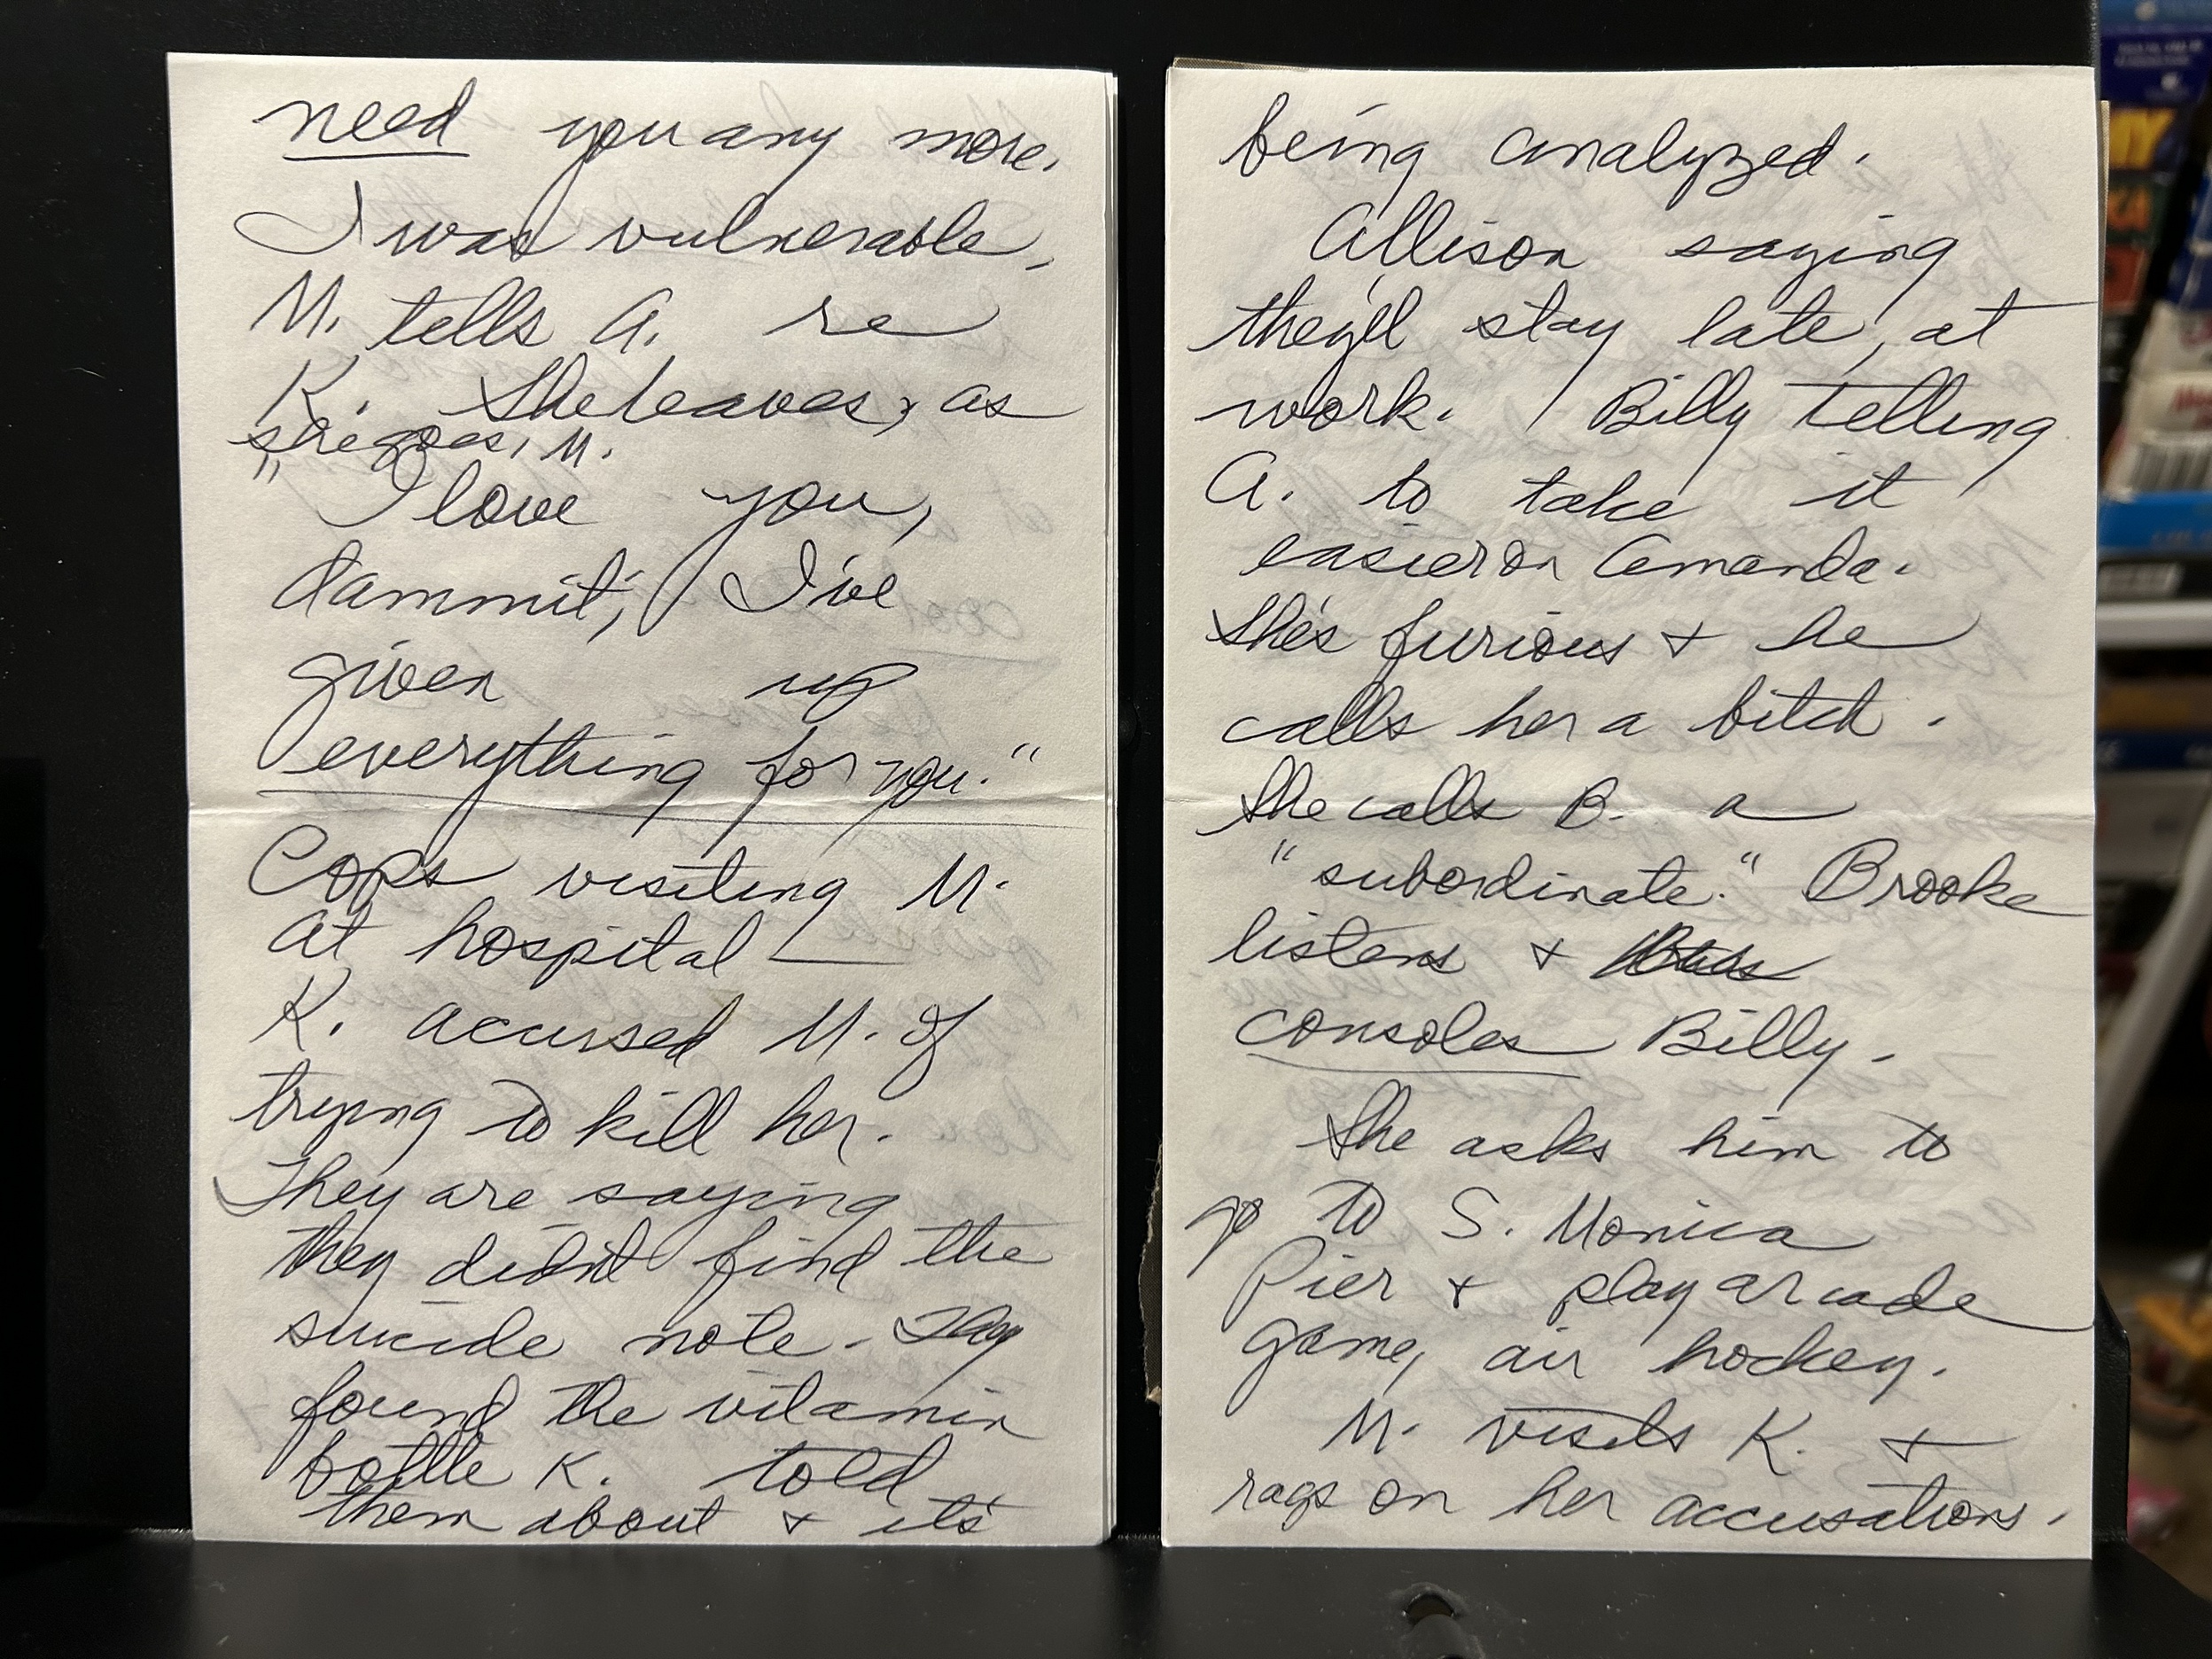 need you any more.
I was vulnerable.
M. tells A. re
K. She leaves, as
she goes, M.
"I love you,
dammit, I've
given up
everything for you."
Cops visiting M.
at hospital —
K. accused M. of
trying to kill her.
They are saying
they didn't find the
suicide note. They
found the vitamin
bottle K. told
them about & it's
being analyzed.
Allison saying
they'll stay late, at
work. / Billy telling
A. to take it
easier on Amanda.
She's furious & he
calls her a bitch.
She calls B. a
"subordinate." Brooke
listens &
consoles Billy.
She asks him to
go to S. Monica
Pier & play arcade
game, air hockey.
M. visits K. &
rags on her accusations.